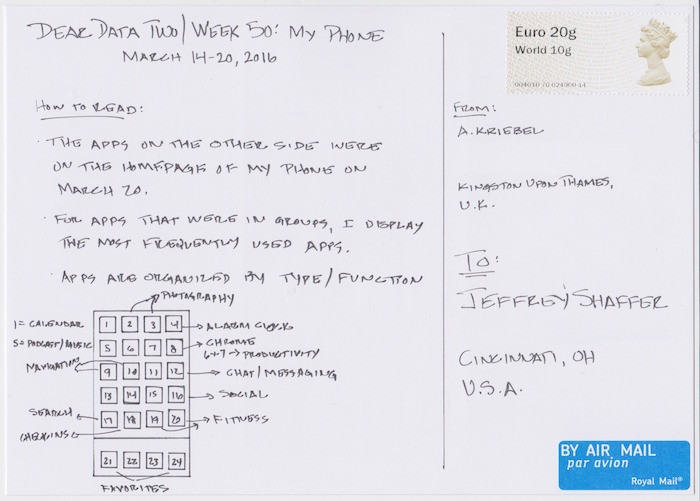 DEAR DATA TWO/WEEK 50: MY PHONE
MARCH 14-20, 2016
HOW TO READ:
· THE APPS ON THE OTHER SIDE WERE
ON THE HOMEPAGE OF MY PHONE ON
MARCH 20.
· FOR APPS THAT WERE IN GROUPS, I DISPLAY
THE MOST FREQUENTLY USED APPS.
· APPS ARE ORGANIZED BY TYPE/FUNCTION
PHOTOGRAPHY
1 = CALENDAR
1 2 3 4
ALARM CLOCK
5 = PODCAST/MUSIC
5 6 7 8
CHROME
6+7 → PRODUCTIVITY
NAVIGATION
9 10 11 12
CHAT/MESSAGING
13 14 15 16
SOCIAL
SEARCH
17 18 19 20
FITNESS
21 22 23 24
FAVORITES
Euro 20g
World 10g
FROM:
A. KRIEBEL
KINGSTON UPON THAMES,
U.K.
TO:
JEFFREY SHAFFER
CINCINNATI, OH
U.S.A.
BY AIR MAIL
par avion
Royal Mail®